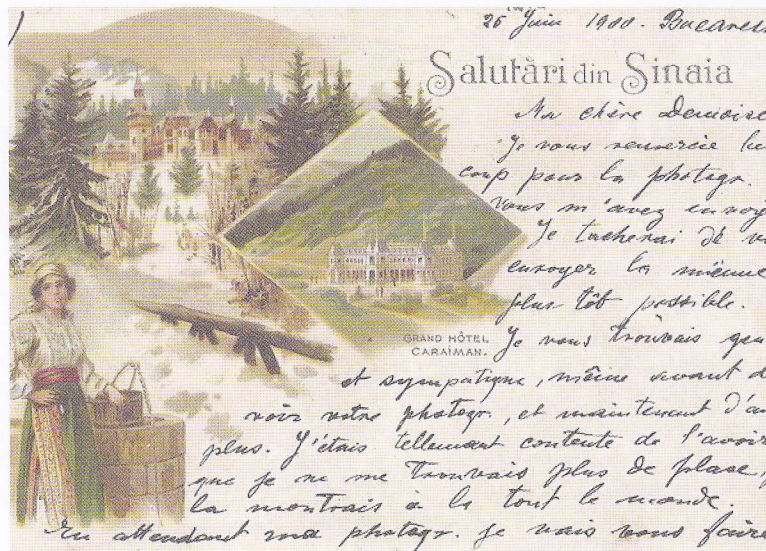 26 Juin 1900. Bucarest
Salutări din Sinaia
Ma chère Demoise
Je vous remercie bea
coup pour la photogr.
vous m'avez envoyé
Je tacherai de v
envoyer la mienne
plus tôt possible.
GRAND HÔTEL
CARAIMAN.
Je vous trouvais gen
et sympatique, même avant d
voir votre photogr, et maintenant d'au
plus. J'étais tellement contente de l'avoir
que je ne me trouvais plus de place,
la montrais à la tout le monde.
En attendant ma photogr. je vais vous faire